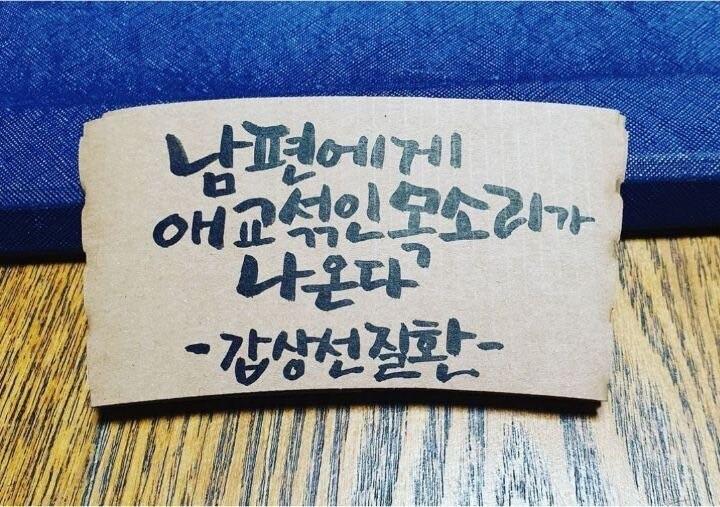 남편에게
애교섞인목소리가
나온다
-갑상선질환-